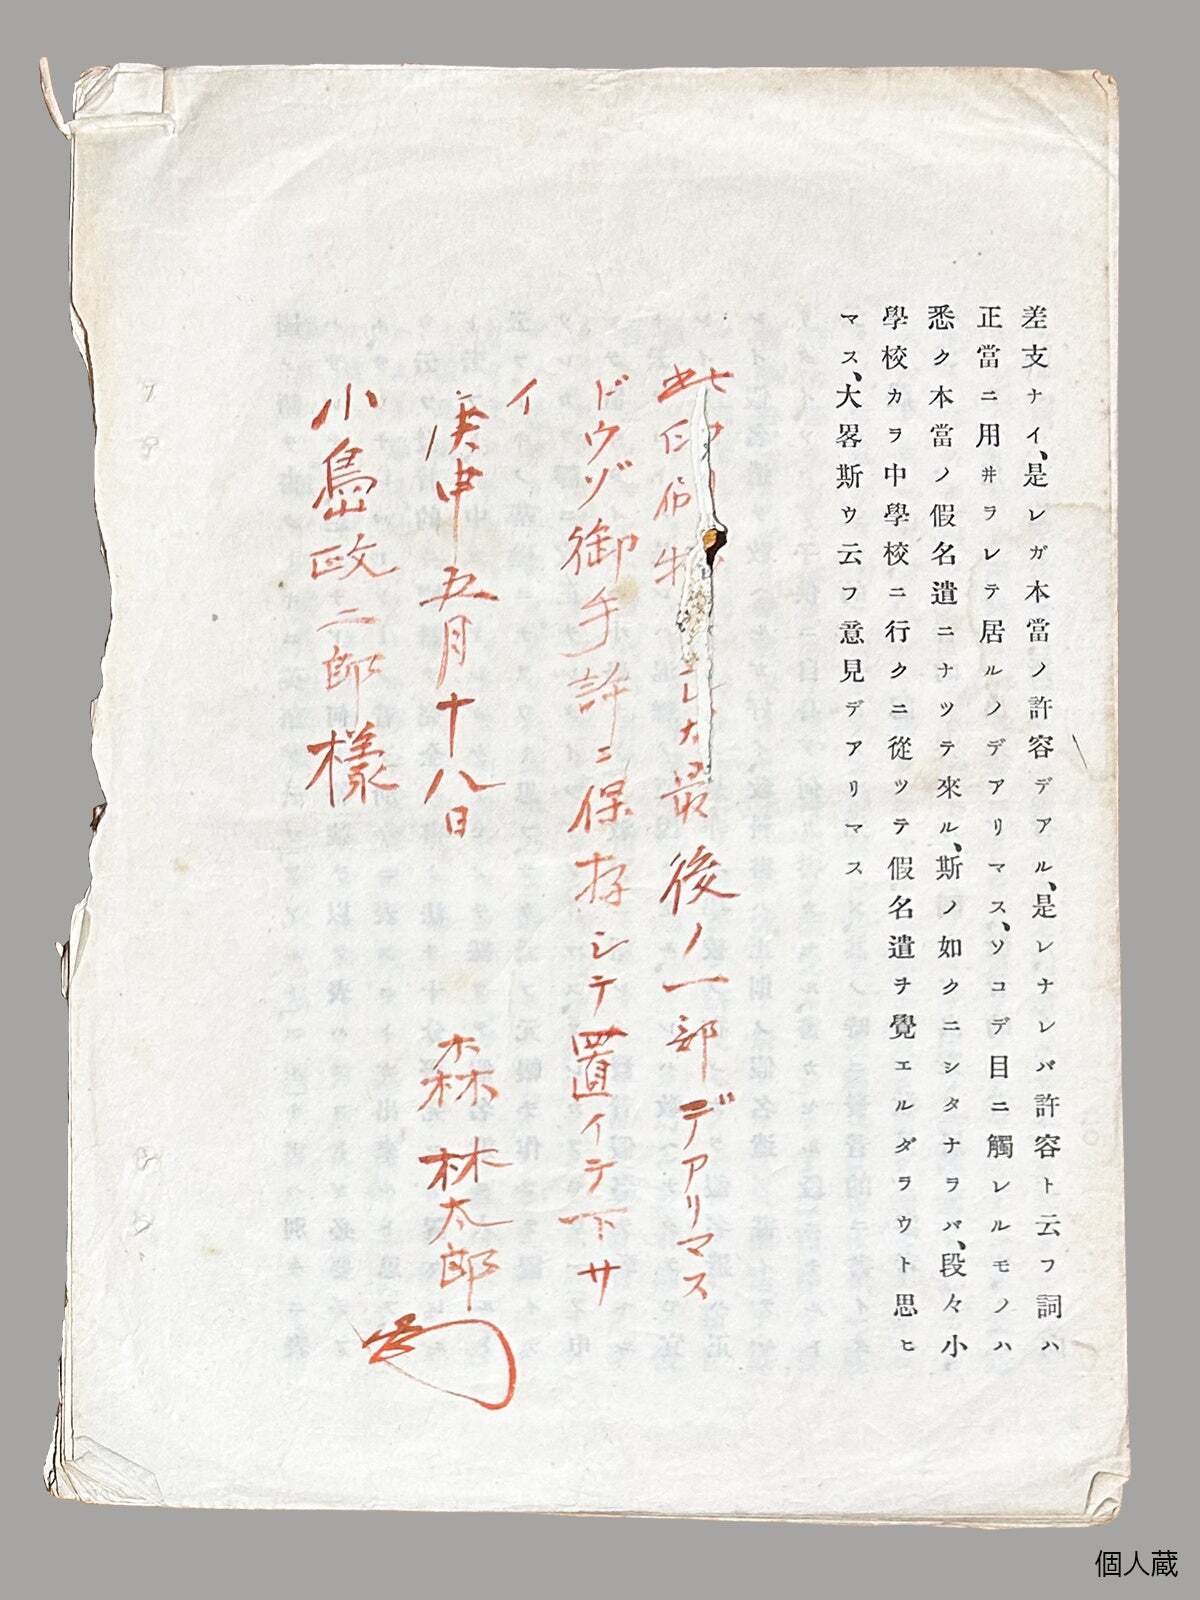 差支ナイ、是レガ本當ノ許容デアル、是レナレバ許容ト云フ詞ハ
正當ニ用井ラレテ居ルノデアリマス、ソコデ目ニ觸レルモノハ
悉ク本當ノ假名遣ニナツテ來ル、斯ノ如クニシタナラバ、段々小
學校カラ中學校ニ行クニ從ツテ假名遣ヲ覺エルダラウト思ヒ
マス、大畧斯ウ云フ意見デアリマス
此印刷物 最後ノ一部デアリマス
ドウゾ御手許ニ保存シテ置イテ下サ
イ
庚申五月十八日 森林太郎
小島政二郎樣
個人蔵